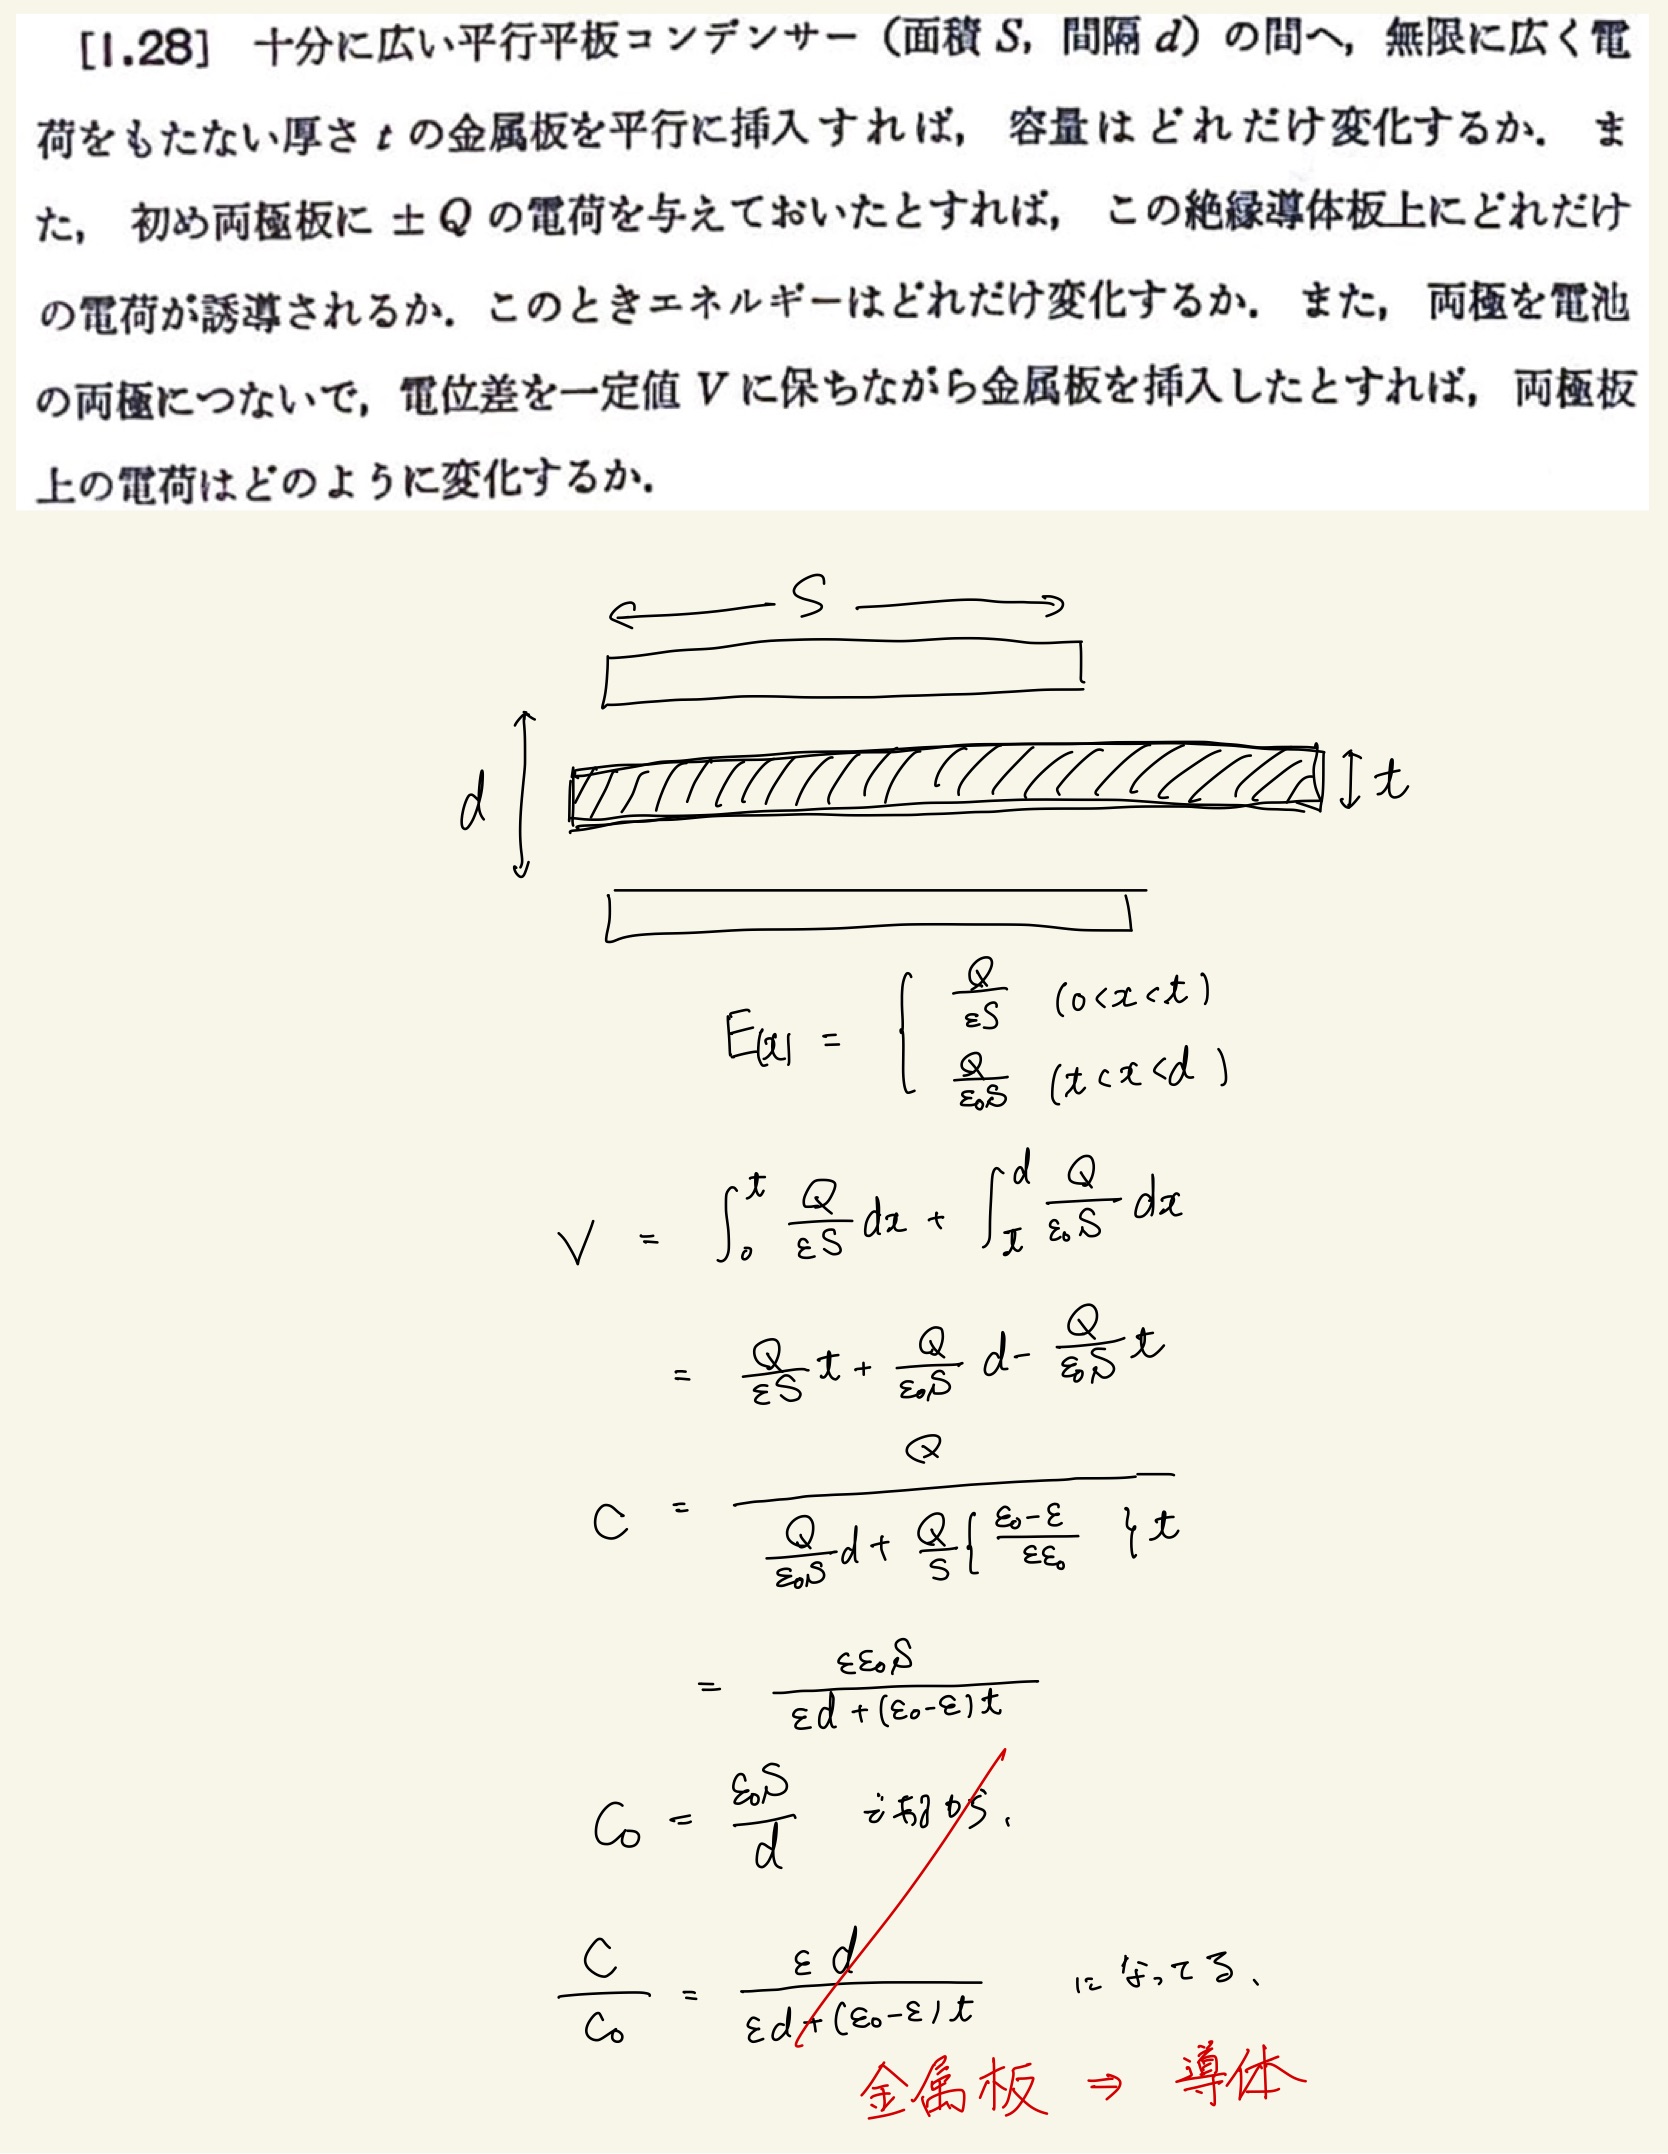 [1.28] 十分に広い平行平板コンデンサー（面積 S, 間隔 d）の間へ, 無限に広く電
荷をもたない厚さ t の金属板を平行に挿入すれば, 容量はどれだけ変化するか. ま
た, 初め両極板に ±Q の電荷を与えておいたとすれば, この絶縁導体板上にどれだけ
の電荷が誘導されるか. このときエネルギーはどれだけ変化するか. また, 両極を電池
の両極につないで, 電位差を一定値 V に保ちながら金属板を挿入したとすれば, 両極板
上の電荷はどのように変化するか.
S
d
t
E(x) = { Q/εS (0<x<t)
Q/ε₀S (t<x<d)
V = ∫₀^t Q/εS dx + ∫_t^d Q/ε₀S dx
= Q/εS t + Q/ε₀S d - Q/ε₀S t
C = Q / (Q/ε₀S d + Q/S { (ε₀-ε)/εε₀ } t)
= εε₀S / (εd + (ε₀-ε)t)
C₀ = ε₀S/d であるから、
C/C₀ = εd / (εd + (ε₀-ε)t) になってる、
金属板 ⇒ 導体